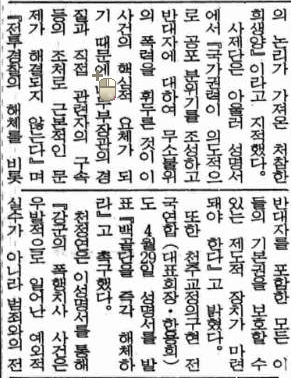 의 논리가 가져온 처참한
희생양』이라고 지적했다.
사제단은 아울러 성명서
에서 『국가권력이 의도적으
로 공포 분위기를 조성하고
반대자에 대하여 무소불위
의 폭력을 휘두른 것이 이
사건의 핵심적 요체가 되
기 때문에 부장관의 경
질과 직접 관련자의 구속
등의 조처로 근본적인 문
제가 해결되지 않는다』며
『전투경찰의 해체를 비롯
반대자를 포함한 모든 이
들의 기본권을 보호할 수
있는 제도적 장치가 마련
돼야 한다』고 밝혔다.
또한 천주교정의구현 전
국연합(대표회장・한용희)
도 4월29일 성명서를 발
표 『백골단을 즉각 해체하
라』고 촉구했다.
천정연은 이 성명서를 통해
『강군의 폭행치사 사건은
우발적으로 일어난 예외적
실수가 아니라 범죄와의 전